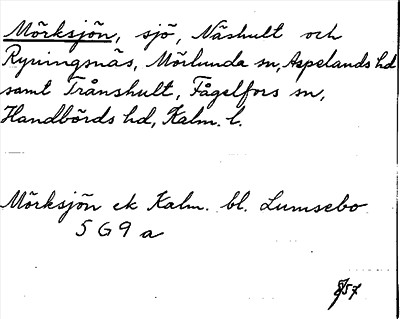 Mörksjön, sjö, Näshult och
Ryningsnäs, Mörlunda sn, Aspelands hd
samt Trånshult, Fågelfors sn,
Handbörds hd, Kalm. l.
Mörksjön ek Kalm. bl. Lumsebo
5 G 9 a